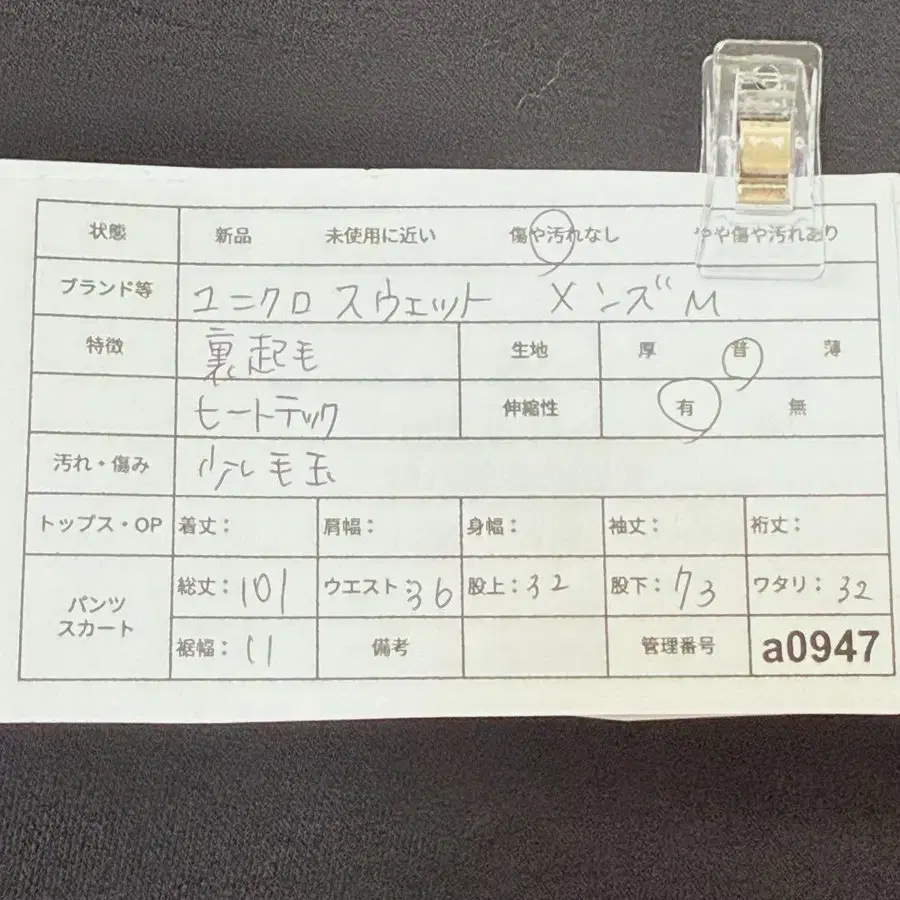 状態 新品 未使用に近い 傷や汚れなし やや傷や汚れあり
ブランド等 ユニクロ スウェット メンズ M
特徴 裏起毛 生地 厚 普 薄
ヒートテック 伸縮性 有 無
汚れ・傷み 少し毛玉
トップス・OP 着丈: 肩幅: 身幅: 袖丈: 裄丈:
パンツ スカート 総丈:101 ウエスト:36 股上:32 股下:73 ワタリ:32
裾幅:11 備考 管理番号 a0947